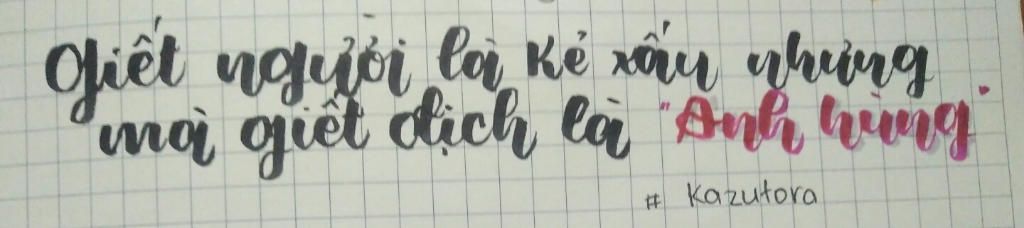 Giết người là kẻ xấu nhưng
mà giết địch là "Anh hùng"
# Kazutora